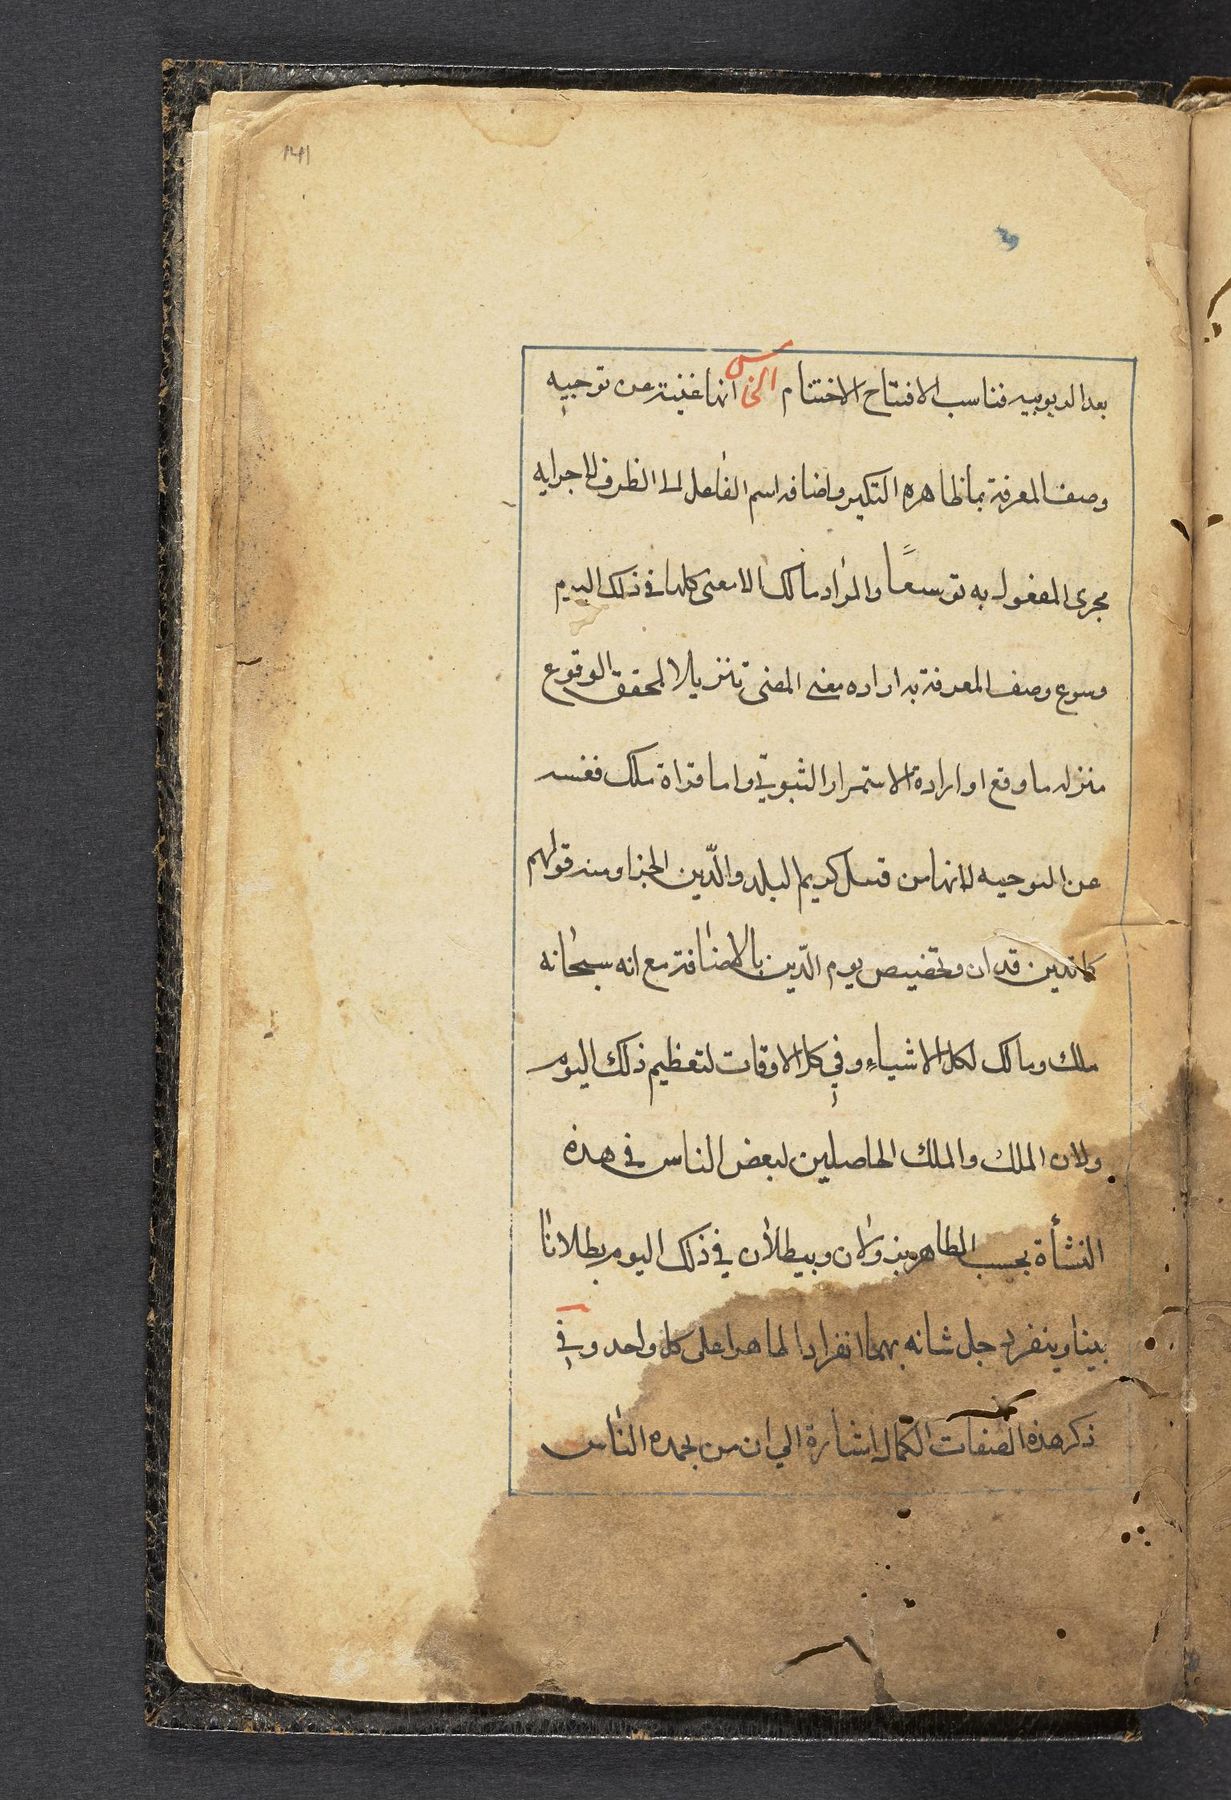 ١٤١
بعد الربوبيه فناسب الافتتاح الاختتام الخامس انها غنيته عن توجيه
وصف المعرفة بما ظاهره التنكير واضافه اسم الفاعل الى الظرف لاجرايه
مجرى المفعول به توسعاً والمراد مالك الامعنى كلها في ذلك اليوم
وسوع وصف المعرفة به اراده معنى المضى تنزيلا لمحقق الوقوع
منزله ما وقع او ارادة الاستمرار الثبوتي واما قراة ملك فغنيه
عن التوجيه لانها من قبيل كريم البلد والدّين الجزا ومنه قولهم
كما تدين تدان وتخصيص يوم الدّين بالاضافة مع انه سبحانه
ملك ومالك لكل الاشياء وفي كل الاوقات لتعظيم ذلك اليوم
ولان الملك والملك الحاصلين لبعض الناس في هذه
النشأة بحسب الظاهر يزولان ويبطلان في ذلك اليوم بطلانا
بينا وينفرد جل شانه بهما انفرادا ظاهرا على كل واحد وفي
ذكر هذه الصفات الكمال اشارة الي ان من يحمده الناس